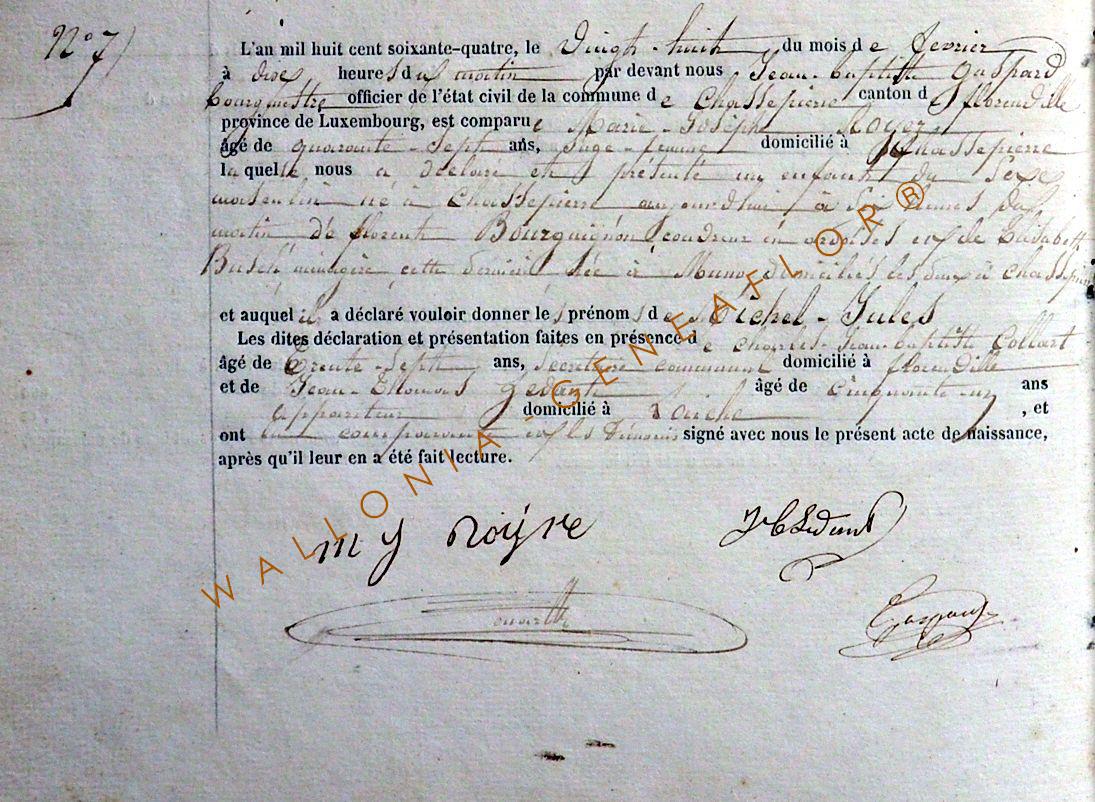 N° 7
L'an mil huit cent soixante-quatre, le vingt-huit du mois de fevrier
à dix heures du matin par devant nous Jean-baptiste Gaspard
bourgmestre officier de l'état civil de la commune de Chassepierre canton de florenville
province de Luxembourg, est comparue Marie-Joseph
âgé de quarante-sept ans, Sage-femme domicilié à Chassepierre
laquelle nous a déclaré et présenté un enfant du Sexe
masculin né à Chassepierre aujourd'hui à heures du
matin de florent Bourguignon, en ardoises et de Elisabeth
ménagère cette dernière née à Muno domiciliés les deux à Chassepierre
et auquel il a déclaré vouloir donner les prénoms de Michel-Jules
Les dites déclaration et présentation faites en présence de Charles-Jean-baptiste Collart
âgé de trente-Sept ans, Secrétaire communal domicilié à florenville
et de Jean-Thomas âgé de cinquante-un ans
appariteur domicilié à Laiche, et
ont la comparante et les témoins signé avec nous le présent acte de naissance,
après qu'il leur en a été fait lecture.
m j
Gaspard
WALLONIA-GENEAFLOR®